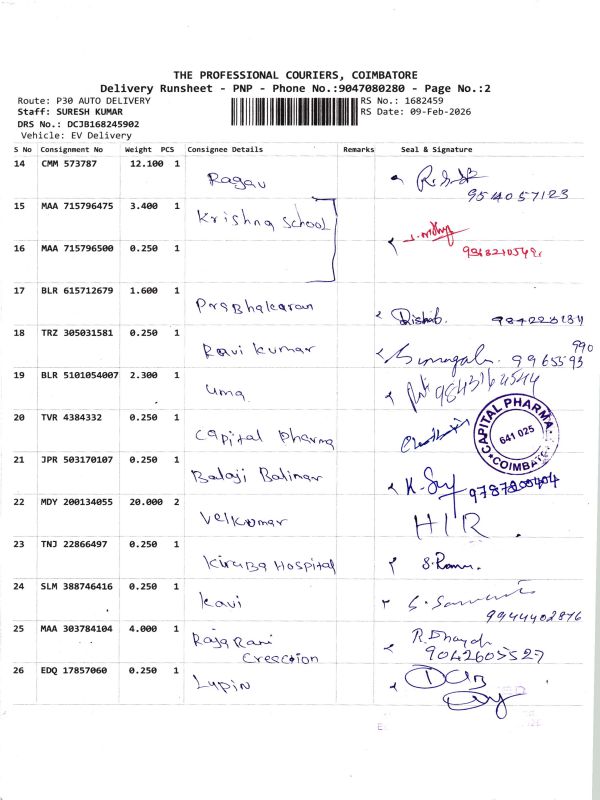 THE PROFESSIONAL COURIERS, COIMBATORE
Delivery Runsheet - PNP - Phone No.:9047080280 - Page No.:2
Route: P30 AUTO DELIVERY RS No.: 1682459
Staff: SURESH KUMAR RS Date: 09-Feb-2026
DRS No.: DCJB168245902
Vehicle: EV Delivery
S No Consignment No Weight PCS Consignee Details Remarks Seal & Signature
14 CMM 573787 12.100 1 Ragav
9514057123
15 MAA 715796475 3.400 1 Krishna School
16 MAA 715796500 0.250 1
17 BLR 615712679 1.600 1 Prabhakaran Rishab.
18 TRZ 305031581 0.250 1 Ravi Kumar 9965593 990
19 BLR 5101054007 2.300 1 Uma 9843162544
20 TVR 4384332 0.250 1 Capital pharma
CAPITAL PHARMA
641 025
COIMBATORE
21 JPR 503170107 0.250 1 Balaji Balimar
22 MDY 200134055 20.000 2 Velkumar H/R.
23 TNJ 22866497 0.250 1 Kiruba Hospital
24 SLM 388746416 0.250 1 Kavi
9944402876
25 MAA 303784104 4.000 1 Raja Rani
Creection
9042605527
26 EDQ 17857060 0.250 1 Lupin